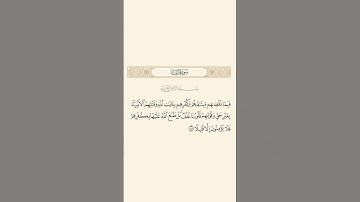 فَبِمَا نَقْضِهِم مِّيثَٰقَهُمْ وَكُفْرِهِم بِـَٔايَٰتِ ٱللَّهِ وَقَتْلِهِمُ ٱلْأَنۢبِيَآءَ
بِغَيْرِ حَقٍّ وَقَوْلِهِمْ قُلُوبُنَا غُلْفٌۢ بَلْ طَبَعَ ٱللَّهُ عَلَيْهَا بِكُفْرِهِمْ
فَلَا يُؤْمِنُونَ إِلَّا قَلِيلًا